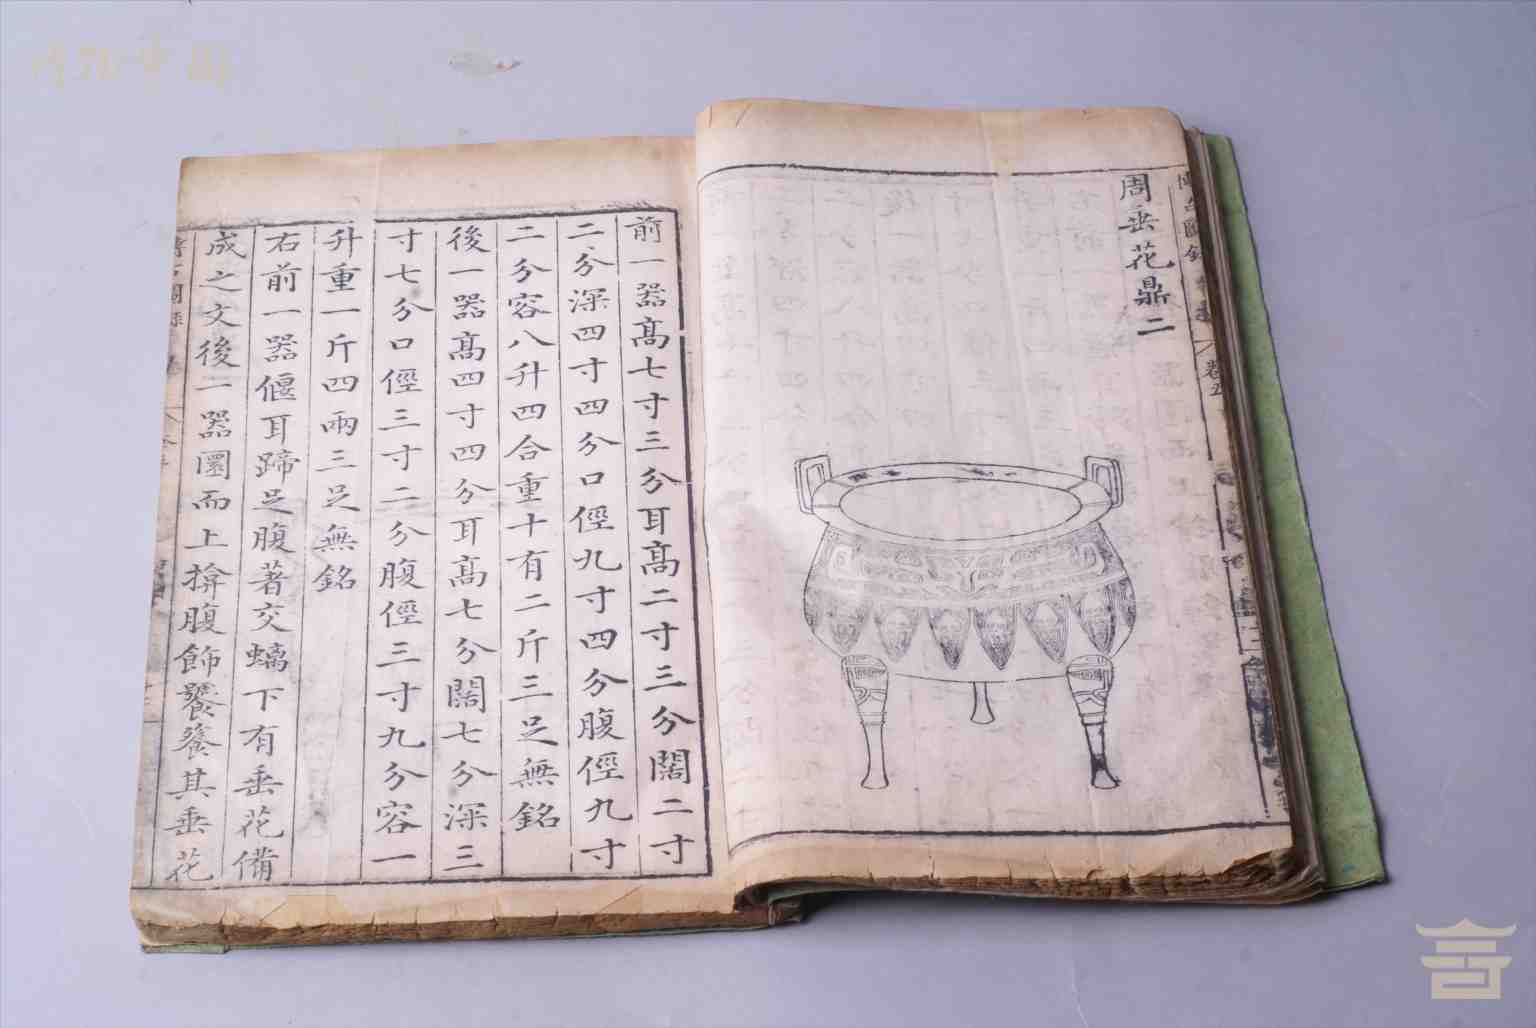 周垂花鼎二
前一器高七寸三分耳高二寸三分闊二寸
二分深四寸四分口徑九寸四分腹徑九寸
二分容八升四合重十有二斤三足無銘
後一器高四寸四分耳高七分闊七分深三
寸七分口徑三寸二分腹徑三寸九分容一
升重一斤四兩三足無銘
右前一器偃耳蹄足腹著交螭下有垂花備
成之文後一器圜而上揜腹飾饕餮其垂花
卷五